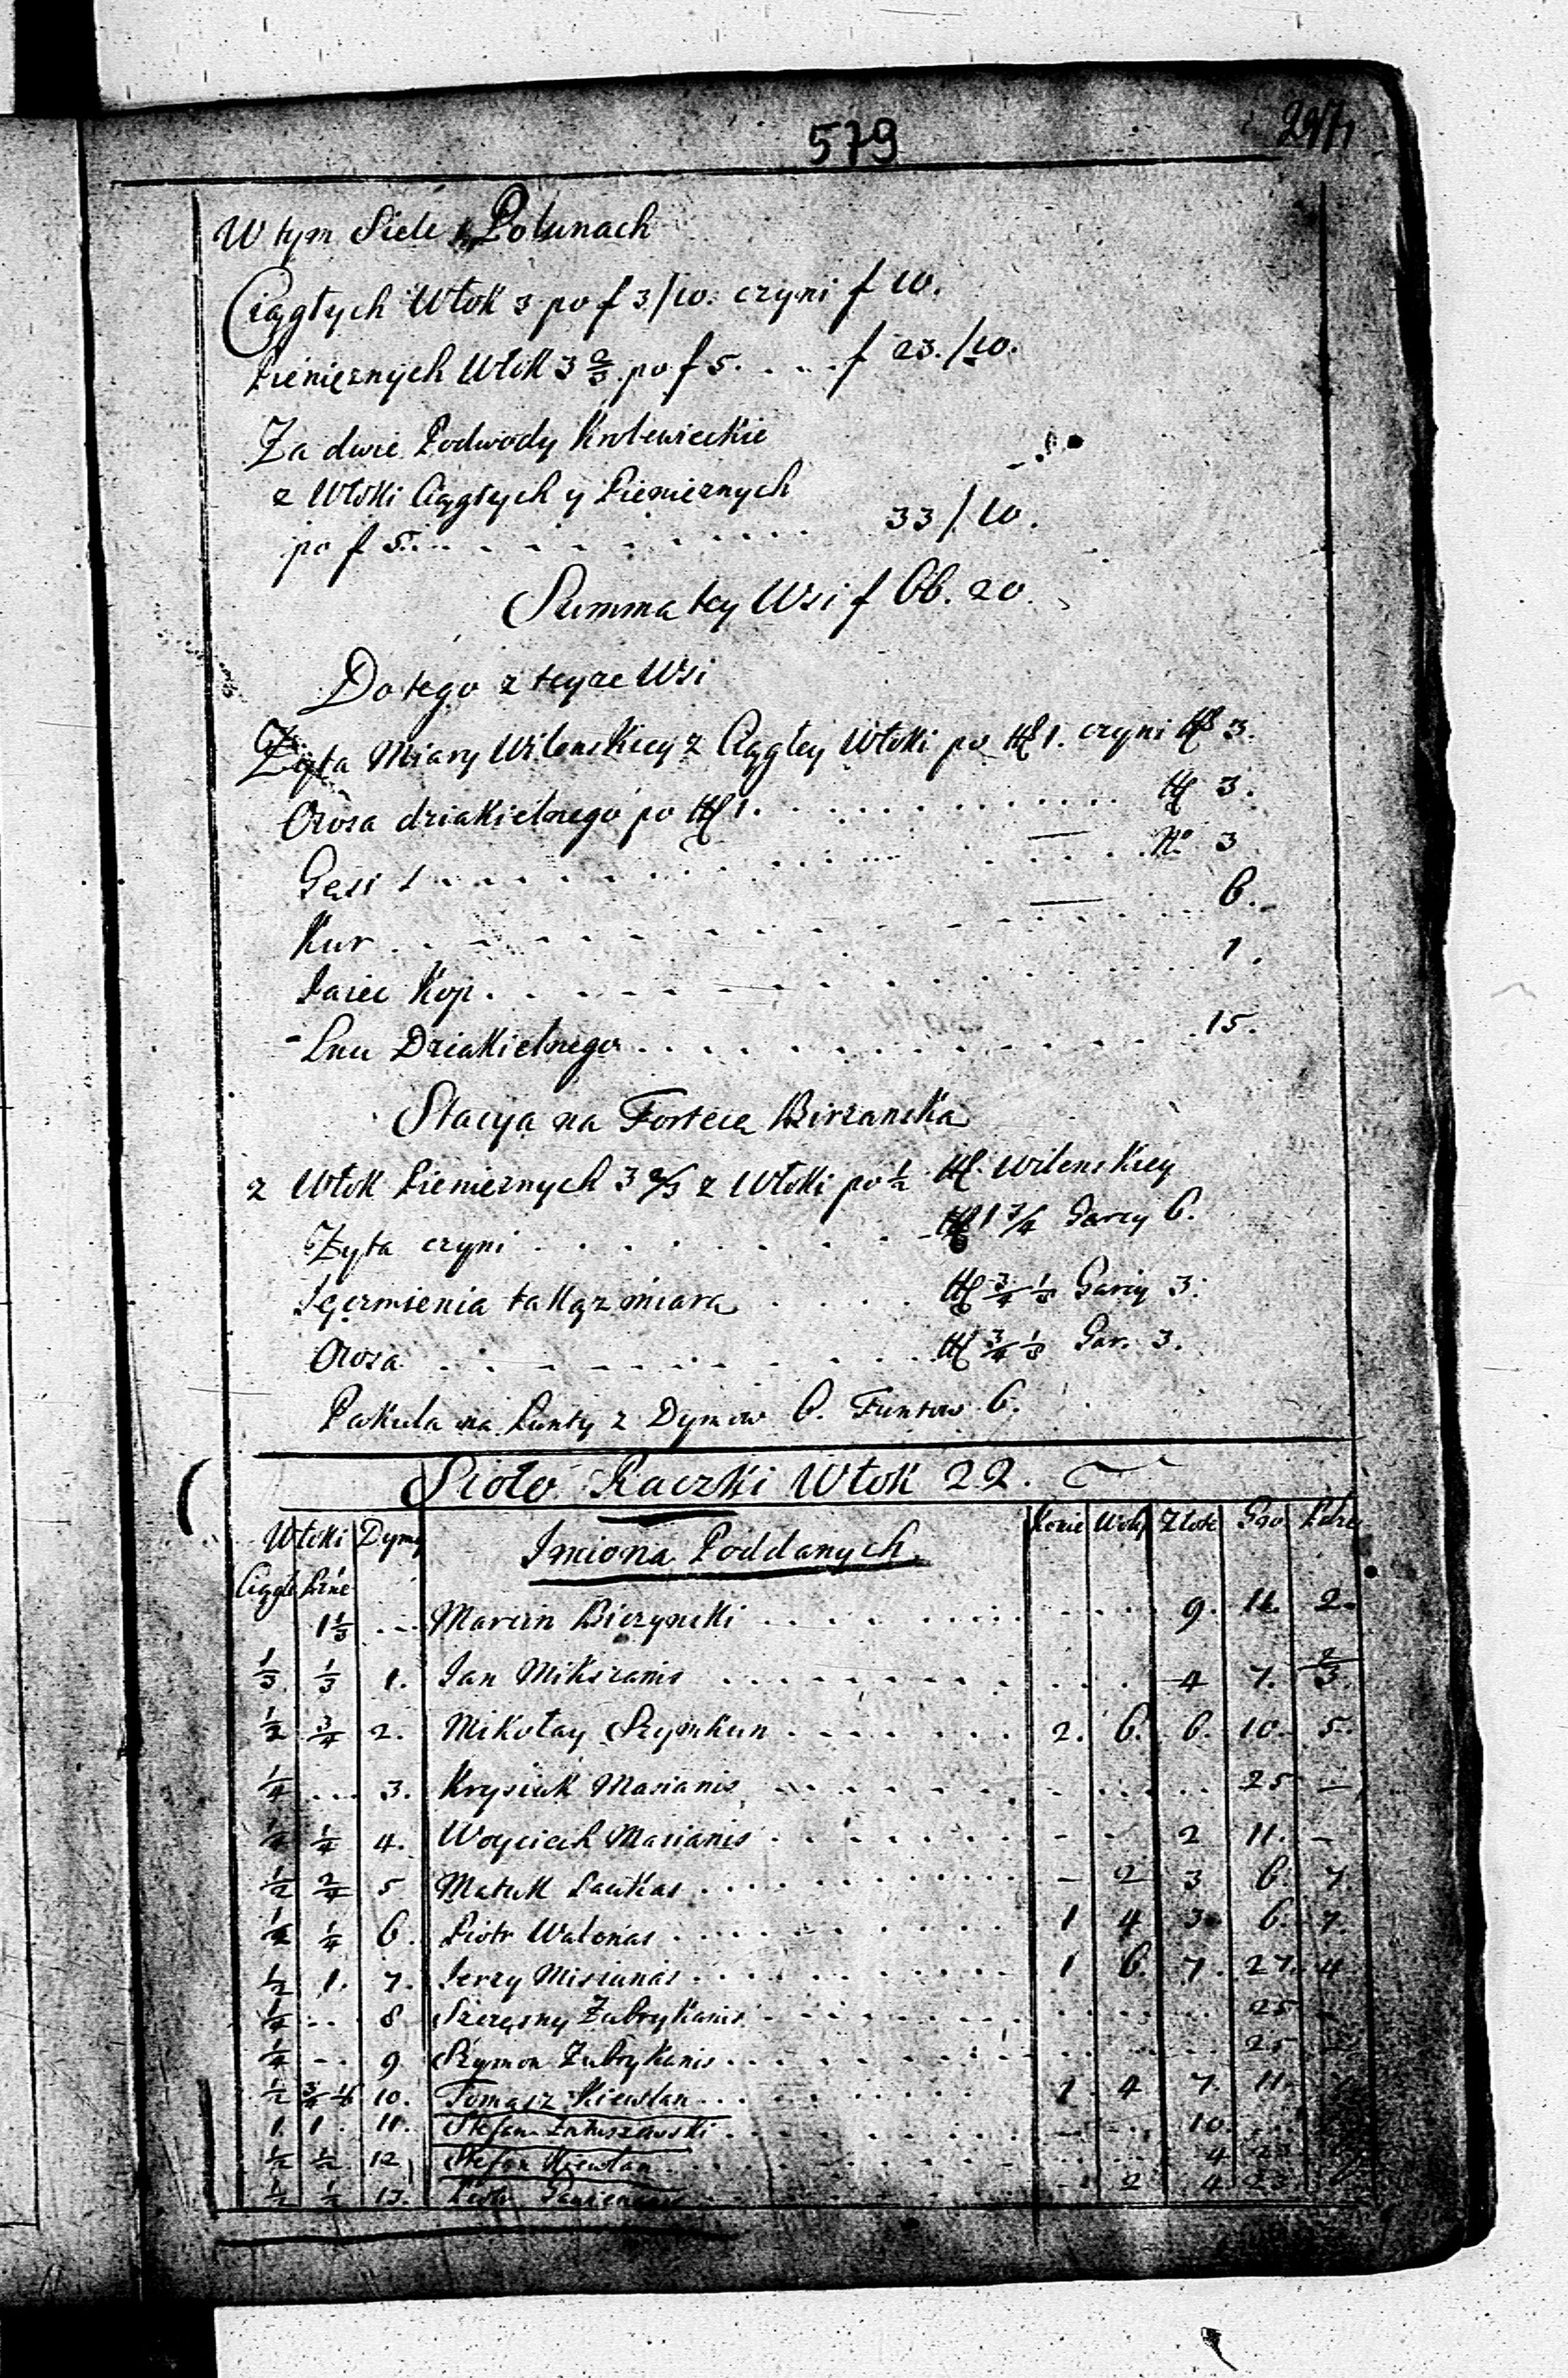 579
297
W tym Siele Polunach
Ciągłych Włok 3 po f 3/10. czyni f 10.
Pienięznych Włok 3 2/3 po f 5. . . . f 23./10.
Za dwie Podwody Krolewieckie
z Włoki Ciągłych y Pienieznych
po f 5. . . . 33/10.
Summa tey Wsi f 66. 20.
Do tego z teyze Wsi
Zyta Miary Wilenskiey z Ciągłey Włoki po 1. czyni 3.
Owsa dziakielnego po 1. . . . 3.
Gęsi . . . No 3
Kur . . . 6.
Jaiec Kop . . . 1.
Lnu Dziakielnego . . . 15.
Stacya na Fortecę Birzanska
z Włok Pienieznych 3 2/3 z Włoki po 1/2 Wilenskiey
Zyta czyni . . . 1 3/4 Garcy 6.
Jęczmienia takąz miarą . . . 3/4 1/8 Garcy 3.
Owsa . . . 3/4 1/8 Gar. 3.
Pakuła na Lunty z Dymow 6. Funtow 6.
Sioło Raczki Włok 22.
Włoki Dymy Imiona Poddanych Konie Woły Złote Gro
Ciągłe Pzne
1 1/3 . . . Marcin Biczyncki . . . 9. 11. 2.
1/3 1/3 1. Jan Mikszanis . . . 4 7. 2/3.
1/2 3/4 2. Mikołay Szymkun . . . 2. 6. 6. 10. 5.
1/4 . . . 3. Krysiuk Masianis . . . 25 –
1/4 4. Woyciech Masianis . . . 2 11. –
1/2 2/4 5 Matuk Laukas . . . – 2 3 6. 7.
1/4 6. Piotr Walonas . . . 1 4 3 6. 7.
1/2 1. 7. Jerzy Misiunas . . . 1 6. 7. 27. 4
1/4 . . 8 Szczęsny Zubrykanis . . . 25 –
1/4 . . 9 Szymon Zubrykanis . . . 25
1/2 10. Tomasz Kiewlan . . . 1 4 7. 11.
1. 1. 11. Stefan . . . 10.
1/2 1/2 12. Stefan Kiewlan . . . 4 23
1/2 1/2 13. Piotr . . . 2 4 23